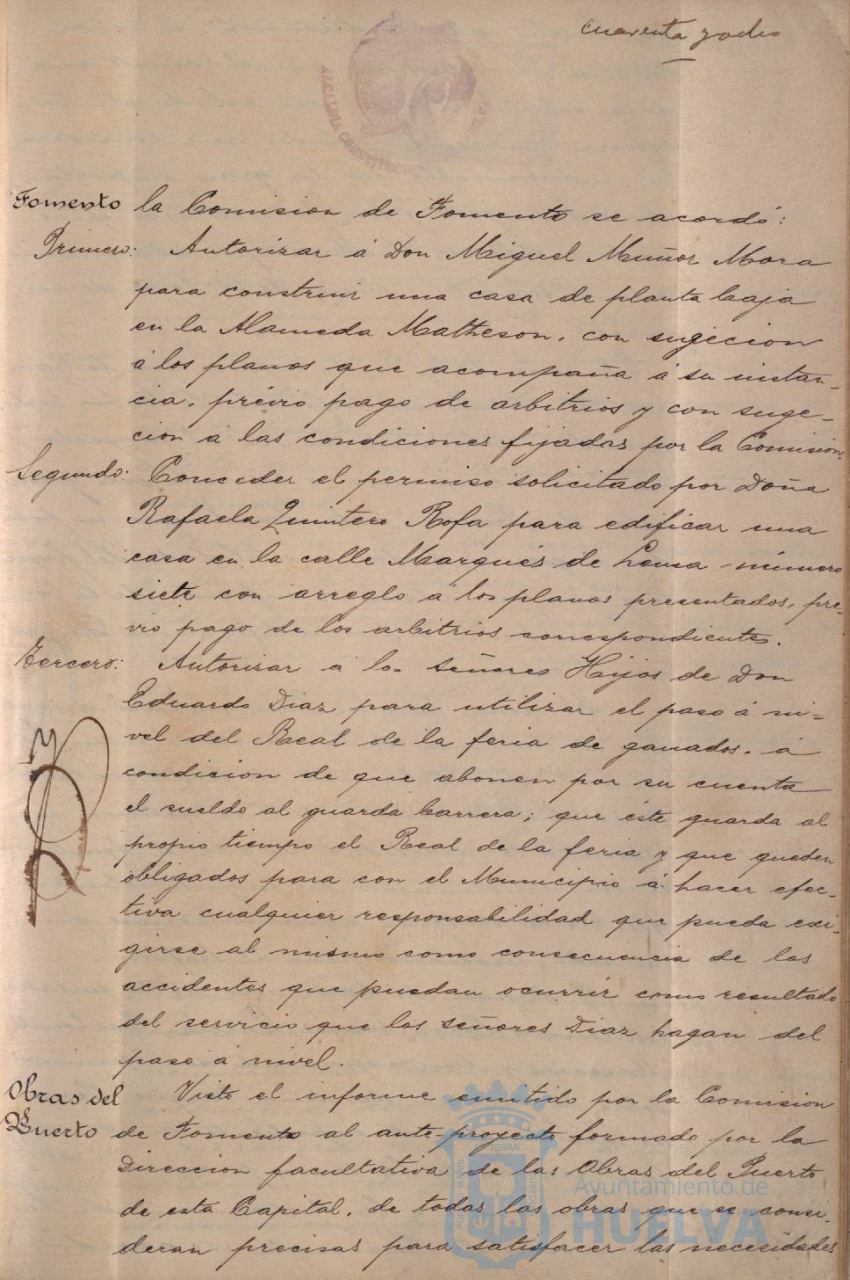 cuarenta y ocho
ALCALDIA CONSTITUCIONAL
Fomento la Comision de Fomento se acordó:
Primero: Autorizar á Don Miguel Muñoz Mora
para construir una casa de planta baja
en la Alameda Matheson, con sugecion
á los planos que acompaña á su instan-
cia, prévio pago de arbitrios y con suge-
cion á las condiciones fijadas por la Comision.
Segundo: Conceder el permiso solicitado por Doña
Rafaela Quintero Rofa para edificar una
casa en la calle Marqués de Lema número
siete con arreglo a los planos presentados, pre-
vio pago de los arbitrios correspondientes.
Tercero: Autorizar á los señores Hijos de Don
Eduardo Diaz para utilizar el paso á ni-
vel del Real de la feria de ganados, á
condicion de que abonen por su cuenta
el sueldo al guarda barrera; que éste guarda al
propio tiempo el Real de la feria y que queden
obligados para con el Municipio á hacer efec-
tiva cualquier responsabilidad que pueda exi-
girse al mismo como consecuencia de los
accidentes que puedan ocurrir como resultado
del servicio que los señores Diaz hagan del
paso á nivel.
Obras del Puerto
Visto el informe emitido por la Comision
de Fomento al ante-proyecto formado por la
Direccion facultativa de las Obras del Puerto
de esta Capital, de todas las obras que se consi-
deran precisas para satisfacer las necesidades
Ayuntamiento de
HUELVA